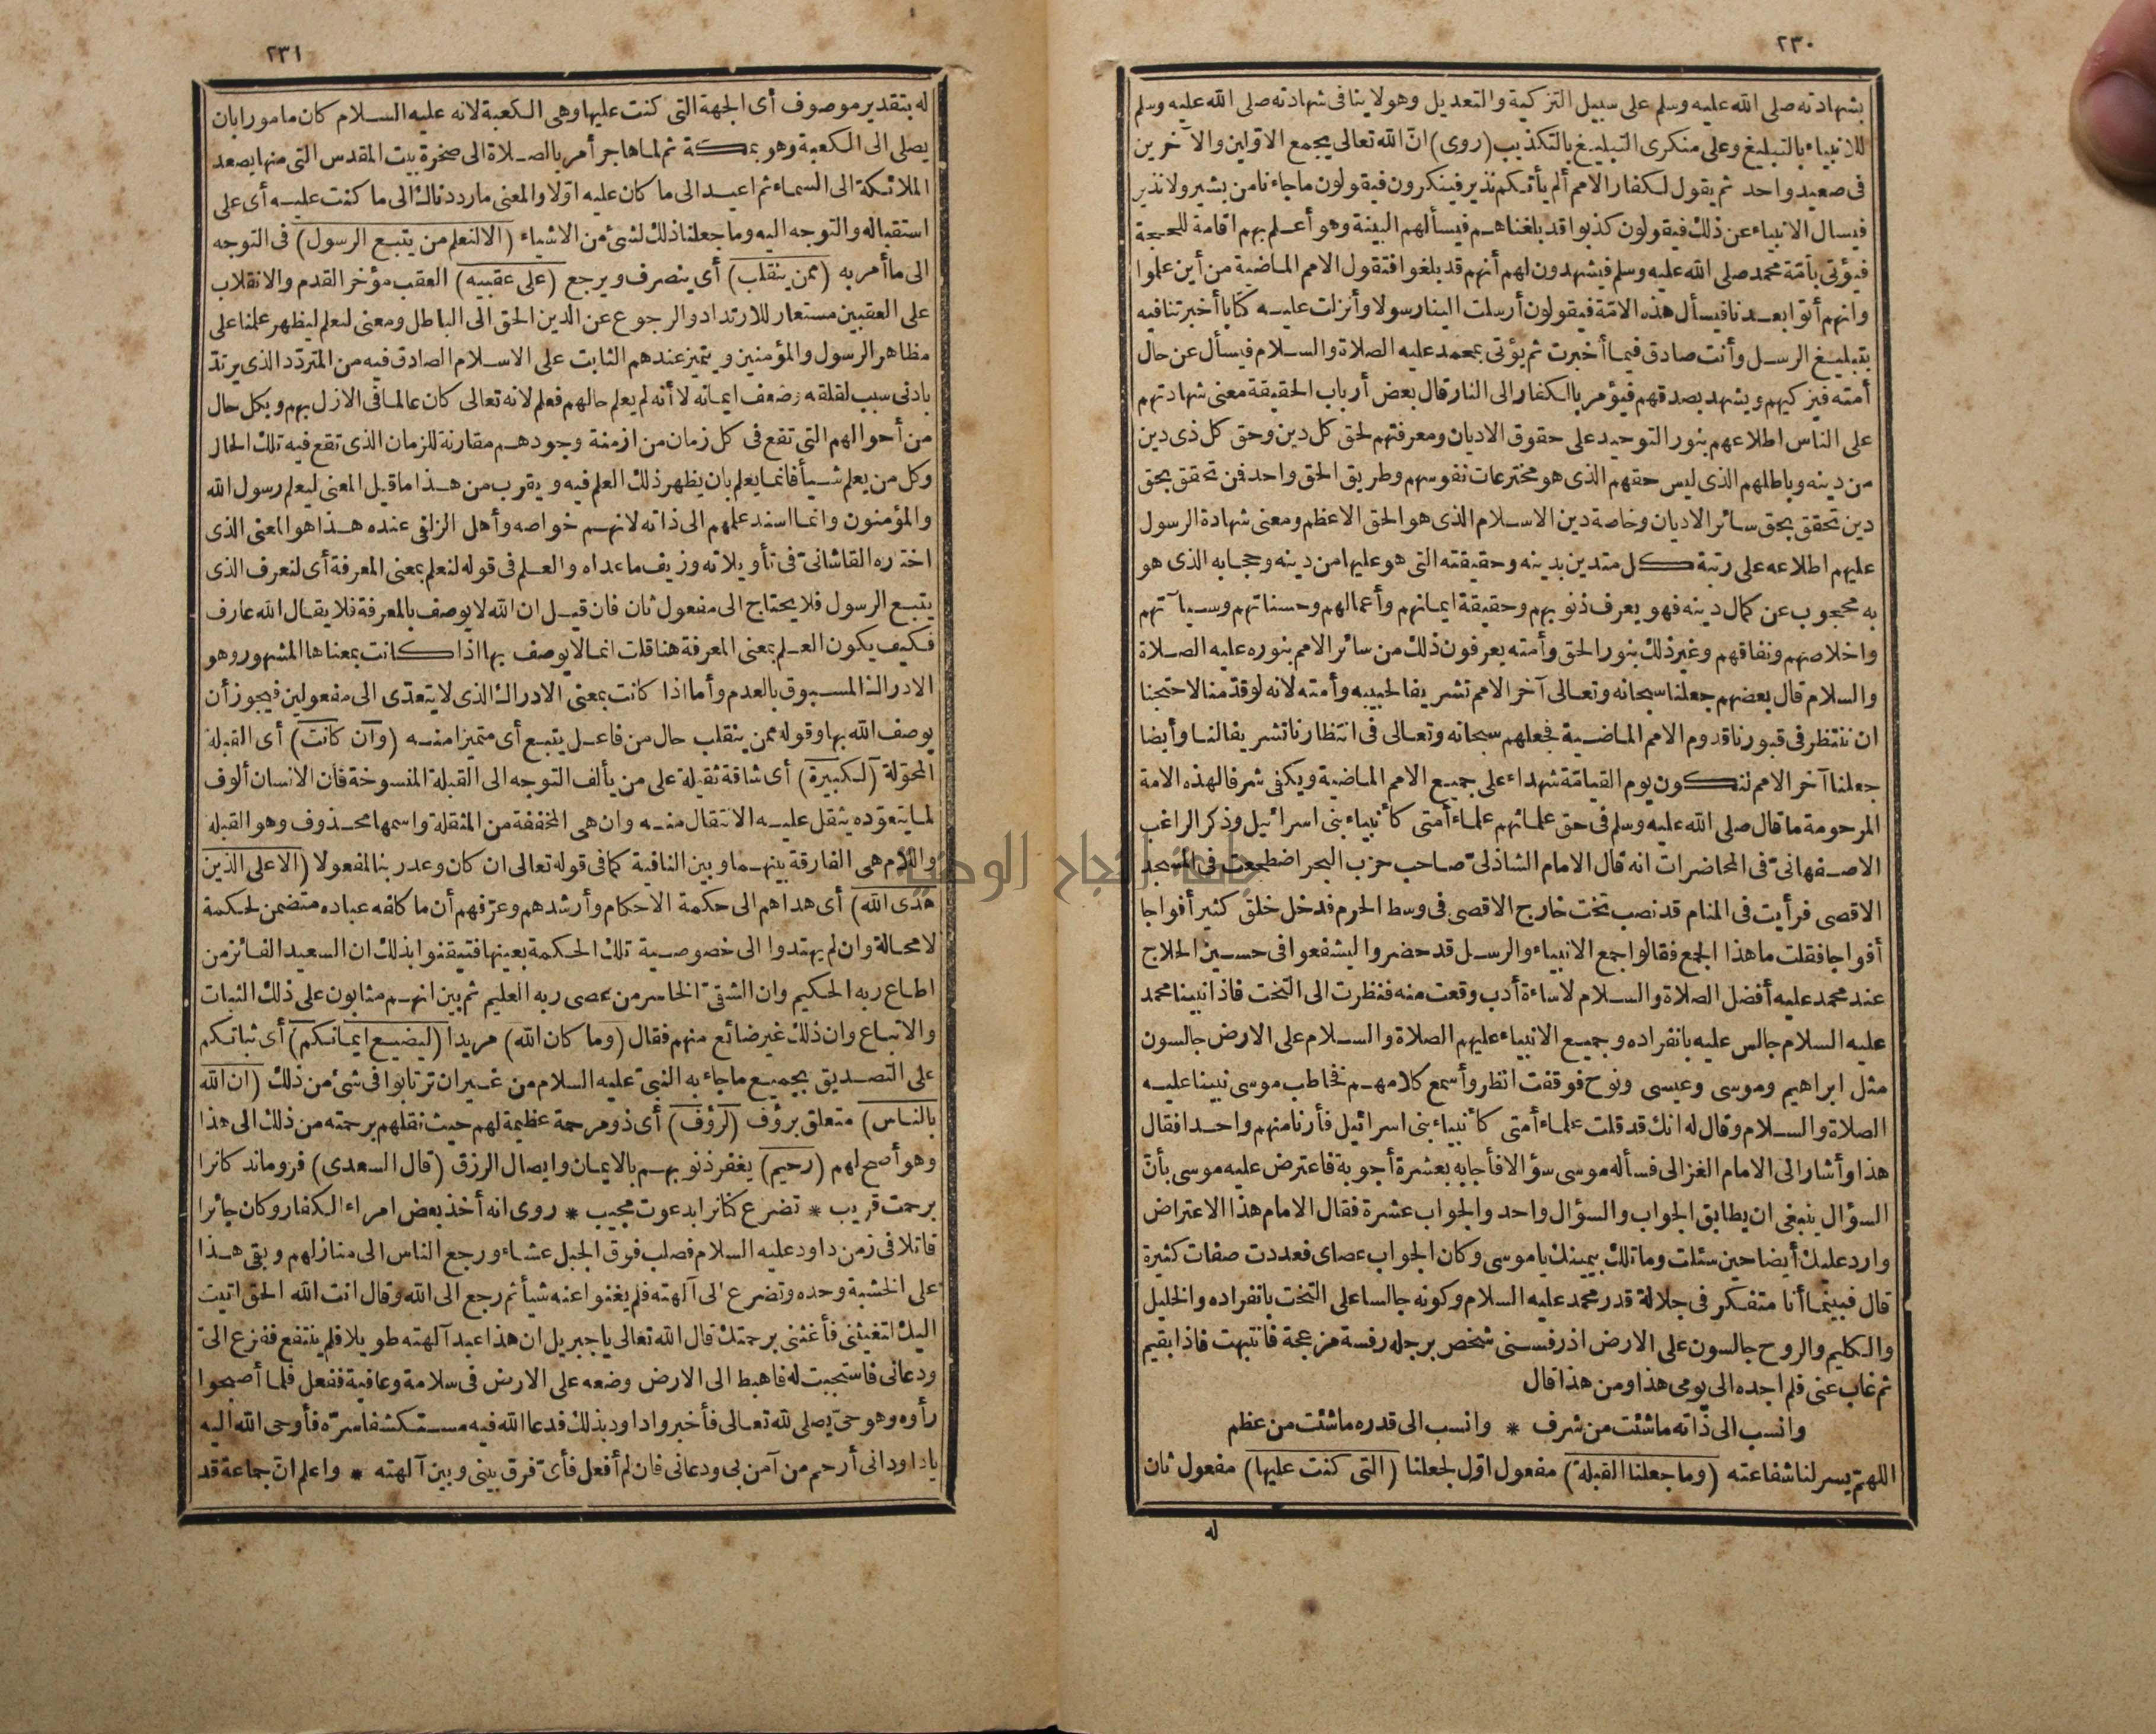 ٢٣٠
بشهادته صلى الله عليه وسلم على سبيل التزكية والتعديل وهو لا ينافى شهادته صلى الله عليه وسلم
للانبياء بالتبليغ وعلى منكرى التبليغ بالتكذيب (روى) انّ الله تعالى يجمع الاوّلين والآخرين
فى صعيد واحد ثم يقول لكفار الامم ألم يأتكم نذير فينكرون فيقولون ما جاءنا من بشير ولا نذير
فيسال الانبياء عن ذلك فيقولون كذبوا قد بلغناهم فيسألهم البينة وهو أعلم بهم اقامة للحجة
فيؤتى بأمّة محمد صلى الله عليه وسلم فيشهدون لهم أنهم قد بلغوا فتقول الامم الماضية من أين علموا
وانهم أتوا بعدنا فيسأل هذه الامّة فيقولون أرسلت الينا رسولا وأنزلت عليه كتابا أخبرتنا فيه
بتبليغ الرسل وأنت صادق فيما أخبرت ثم يؤتى بمحمد عليه الصلاة والسلام فيسأل عن حال
أمته فيزكيهم ويشهد بصدقهم فيؤمر بالكفار الى النار قال بعض أرباب الحقيقة معنى شهادتهم
على الناس اطلاعهم بنور التوحيد على حقوق الاديان ومعرفتهم لحق كل دين وحق كل ذى دين
من دينه وباطلهم الذى ليس حقهم الذى هو مخترعات نفوسهم وطريق الحق واحد فن تحقق بحق
دين تحقق بحق سائر الاديان وخاصة دين الاسلام الذى هو الحق الاعظم ومعنى شهادة الرسول
عليهم اطلاعه على رتبة كل متدين بدينه وحقيقته التى هو عليها من دينه وحجابه الذى هو
به محجوب عن كمال دينه فهو يعرف ذنوبهم وحقيقة ايمانهم وأعمالهم وحسناتهم وسيآتهم
واخلاصهم ونفاقهم وغير ذلك بنور الحق وأمته يعرفون ذلك من سائر الامم بنوره عليه الصلاة
والسلام قال بعضهم جعلنا سبحانه وتعالى آخر الامم تشريفا لحبيبه وأمته لانه لو قدّمنا لاحتجنا
ان ننتظر فى قبورنا قدوم الامم الماضية فجعلهم سبحانه وتعالى فى انتظارنا تشريفا لنا وأيضا
جعلنا آخر الامم لنكون يوم القيامّة شهداء على جميع الامم الماضية ويكفى شرفا لهذه الامة
المرحومة ما قال صلى الله عليه وسلم فى حق علمائهم علماء أمتى كأنبياء بنى اسرائيل وذكر الراغب
الاصفهانىّ فى المحاضرات انه قال الامام الشاذلىّ صاحب حزب البحر اضطجعت فى المسجد
الاقصى فرأيت فى المنام قد نصب تخت خارج الاقصى فى وسط الحرم فدخل خلق كثير أفواجا
أفواجا فقلت ما هذا الجمع فقالوا جمع الانبياء والرسل قد حضروا ليشفعوا فى حسين الحلاج
عند محمد عليه أفضل الصلاة والسلام لاساءة أدب وقعت منه فنظرت الى التخت فاذا نبينا محمد
عليه السلام جالس عليه بانفراده وجميع الانبياء عليهم الصلاة والسلام على الارض جالسون
مثل ابراهيم وموسى وعيسى ونوح فوقفت انظر وأسمع كلامهم فخاطب موسى نبينا عليه
الصلاة والسلام وقال له انك قد قلت علماء أمتى كأنبياء بنى اسرائيل فأرنا منهم واحدا فقال
هذا وأشار الى الامام الغزالى فسأله موسى سؤالا فأجابه بعشرة أجوبة فاعترض عليه موسى بأنّ
السؤال ينبغى ان يطابق الجواب والسؤال واحد والجواب عشرة فقال الامام هذا الاعتراض
وارد عليك أيضا حين سئلت وما تلك بيمينك يا موسى وكان الجواب عصاى فعددت صفات كثيرة
قال فبينما أنا متفكر فى جلالة قدر محمد عليه السلام وكونه جالسا على التخت بانفراده والخليل
والكليم والروح جالسون على الارض اذ رفسنى شخص برجله رفسة مزعجة فانتبهت فاذا بقيم
ثم غاب عنى فلم اجده الى يومى هذا ومن هذا قال
وانسب الى ذاته ماشئت من شرف * وانسب الى قدره ماشئت من عظم
اللهمّ يسر لنا شفاعته (وما جعلنا القبلة) مفعول اوّل لجعلنا (التى كنت عليها) مفعول ثان
له
٢٣١
له بتقدير موصوف أى الجهة التى كنت عليها وهى الكعبة لانه عليه السلام كان مامورا بان
يصلى الى الكعبة وهو بمكة ثم لما هاجر أمر بالصلاة الى صخرة بيت المقدس التى منها يصعد
الملائكة الى السماء ثم اعيد الى ما كان عليه اوّلا والمعنى ما رددناك الى ما كنت عليه أى على
استقباله والتوجه اليه وما جعلنا ذلك لشئ من الاشياء (الا لنعلم من يتبع الرسول) فى التوجه
الى ما أمر به (ممن ينقلب) أى ينصرف ويرجع (على عقبيه) العقب مؤخر القدم والانقلاب
على العقبين مستعار للارتداد والرجوع عن الدين الحق الى الباطل ومعنى لنعلم ليظهر علمنا على
مظاهر الرسول والمؤمنين ويتميز عندهم الثابت على الاسلام الصادق فيه من المتردّد الذى يرتدّ
بادنى سبب لقلقه وضعف ايمانه لا أنه لم يعلم حالهم فعلم لانه تعالى كان عالما فى الازل بهم وبكل حال
من أحوالهم التى تقع فى كل زمان من ازمنة وجودهم مقارنة للزمان الذى تقع فيه تلك الحال
وكل من يعلم شيأ فانما يعلم بان يظهر ذلك العلم فيه ويقرب من هذا ما قيل المعنى ليعلم رسول الله
والمؤمنون وانما اسند علمهم الى ذاته لانهم خواصه وأهل الزلفى عنده هذا هو المعنى الذى
اختاره القاشانىّ فى تأويلاته وزيف ما عداه والعلم فى قوله لنعلم بمعنى المعرفة أى لنعرف الذى
يتبع الرسول فلا يحتاج الى مفعول ثان فان قيل ان الله لا يوصف بالمعرفة فلا يقال الله عارف
فكيف يكون العلم بمعنى المعرفة هنا قلت انما لا يوصف بها اذا كانت بمعناها المشهور وهو
الادراك المسبوق بالعدم وأما اذا كانت بمعنى الادراك الذى لا يتعدّى الى مفعولين فيجوز أن
يوصف الله بها وقوله ممن ينقلب حال من فاعل يتبع أى متميزا منه (وان كانت) أى القبلة
المحوّلة (لكبيرة) أى شاقة ثقيلة على من يألف التوجه الى القبلة المنسوخة فان الانسان ألوف
لما يتعوّده يثقل عليه الانتقال منه وان هى المخففة من المثقلة واسمها محذوف وهو القبلة
واللام هى الفارقة بينهما وبين النافية كما فى قوله تعالى ان كان وعد ربنا لمفعولا (الا على الذين
هدى الله) أى هداهم الى حكمة الاحكام وأرشدهم وعرّفهم أن ما كلفه عباده متضمن لحكمة
لا محالة وان لم يهتدوا الى خصوصية تلك الحكمة بعينها فتيقنوا بذلك ان السعيد الفائز من
اطاع ربه الحكيم وان الشقىّ الخاسر من عصى ربه العليم ثم بين انهم مثابون على ذلك الثبات
والاتباع وان ذلك غير ضائع منهم فقال (وما كان الله) مريدا (ليضيع ايمانكم) أى ثباتكم
على التصديق بجميع ما جاء به النبىّ عليه السلام من غير ان ترتابوا فى شئ من ذلك (ان الله
بالناس) متعلق برؤف (لرؤف) أى ذو مرحمة عظيمة لهم حيث نقلهم برحمته من ذلك الى هذا
وهو أصح لهم (رحيم) يغفر ذنوبهم بالايمان وايصال الرزق (قال السعدى) فروماند كانرا
برحمت قريب * تضرع كنانرا بدعوت مجيب * روى انه أخذ بعض امراء الكفار وكان جائرا
قاتلا فى زمن داود عليه السلام فصلب فوق الجبل عشاء ورجع الناس الى منازلهم وبقى هذا
على الخشبة وحده وتضرع الى آلهته فلم يغنوا عنه شيأ ثم رجع الى الله وقال انت الله الحق اتيت
اليك لتغيثنى فأغثنى برحمتك قال الله تعالى يا جبريل ان هذا عبد آلهته طويلا فلم ينتفع ففزع الىّ
ودعانى فاستجبت له فاهبط الى الارض وضعه على الارض فى سلامة وعافية ففعل فلما أصبحوا
رأوه وهو حىّ يصلى لله تعالى فأخبروا داود بذلك فدعا الله فيه مستكشفا سرّه فأوحى الله اليه
يا داود انى أرحم من آمن بى ودعانى فان لم أفعل فأىّ فرق بينى وبين آلهته * واعلم انّ جماعة قد